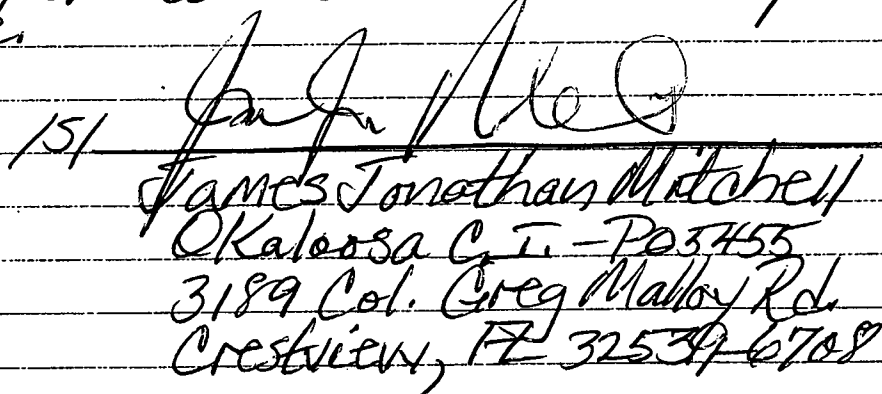 /s/
James Jonathan Mitchell
Okaloosa C.I. - P05455
3189 Col. Greg Malloy Rd.
Crestview, FL 32539-6708